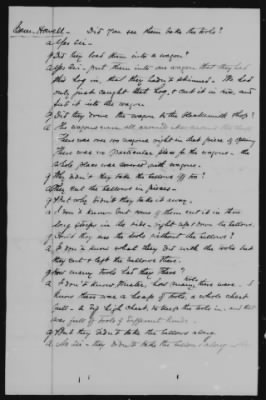 Sam. Howell - Did you see them take the tools?
a Yes Sir -
q Did they load them into a wagon?
a Yes Sir - put them into one wagon that they had
this hog in, that they had skinned. We had
only just caught that hog, & cut it in two, and
put it into the wagon
q Did they drive the wagon to the Blacksmith Shop?
a The wagons were all around
There was one wagon right in that piece of
There was no particular place for the wagons - the
whole place was covered with wagons.
q Why didn't they take the bellows off too?
a They cut the bellows in pieces -
q But why didn't they take it away.
a I don't know but some of them cut it in three
long strips in the side - right up & down the bellows.
q Could they use the tools without the bellows?
a I don't know what they did with the tools but
they cut & left the bellows there.
q How many tools had they there?
a I don't know Master, how many tools there were. I
know there was a heap of tools, a whole chest
full - a big high chest to keep the tools in. and that
was full of tools of different kinds.
q But they didn't take the bellows along
a No Sir - they didn't take the bellows along